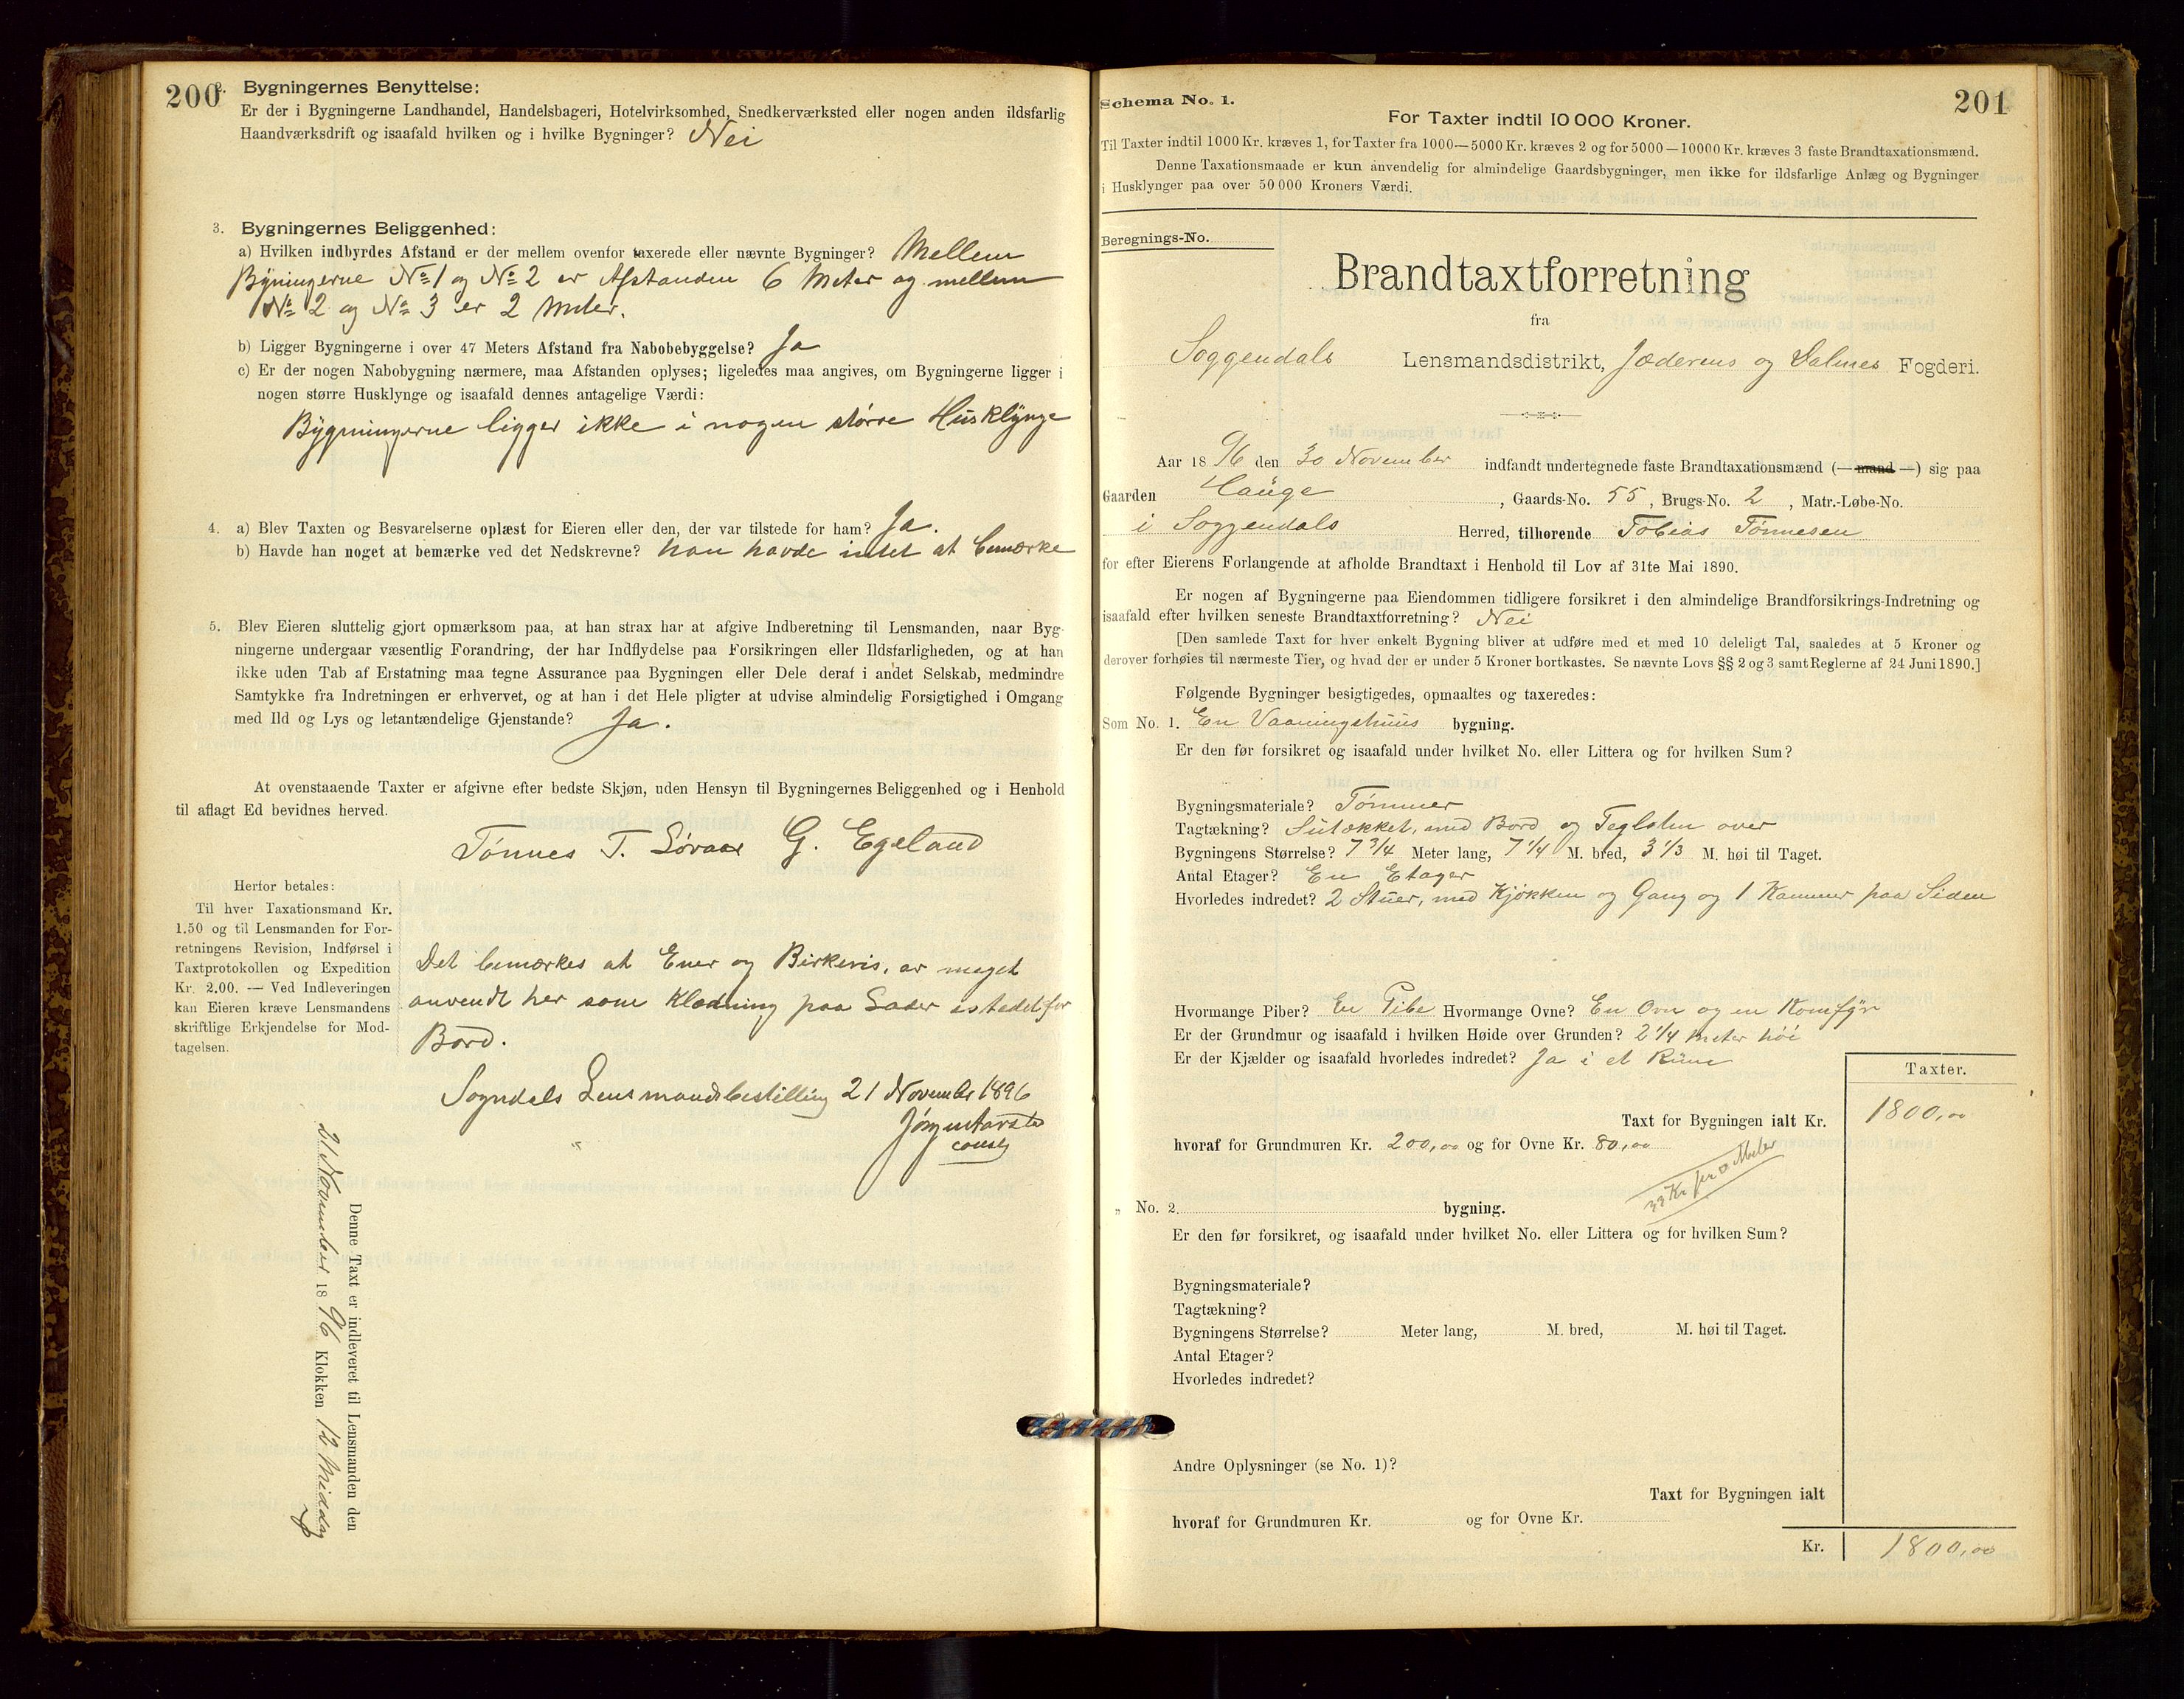 200
2. Bygningernes Benyttelse:
Er der i Bygningerne Landhandel, Handelsbageri, Hotelvirksomhed, Snedkerværksted eller nogen anden ildsfarlig
Haandværksdrift og isaafald hvilken og i hvilke Bygninger? Nei
3. Bygningernes Beliggenhed:
a) Hvilken indbyrdes Afstand er der mellem ovenfor taxerede eller nævnte Bygninger? Mellem
Bygningerne No 1 og No 2 er Afstanden 6 Meter og mellem
No 2 og No 3 er 2 Meter.
b) Ligger Bygningerne i over 47 Meters Afstand fra Nabobebyggelse? Ja
c) Er der nogen Nabobygning nærmere, maa Afstanden oplyses; ligeledes maa angives, om Bygningerne ligger i
nogen større Husklynge og isaafald dennes antagelige Værdi:
Bygningerne ligger ikke i nogen større Husklynge
4. a) Blev Taxten og Besvarelserne oplæst for Eieren eller den, der var tilstede for ham? Ja.
b) Havde han noget at bemærke ved det Nedskrevne? han havde intet at bemærke
5. Blev Eieren sluttelig gjort opmærksom paa, at han strax har at afgive Indberetning til Lensmanden, naar Byg-
ningerne undergaar væsentlig Forandring, der har Indflydelse paa Forsikringen eller Ildsfarligheden, og at han
ikke uden Tab af Erstatning maa tegne Assurance paa Bygningen eller Dele deraf i andet Selskab, medmindre
Samtykke fra Indretningen er erhvervet, og at han i det Hele pligter at udvise almindelig Forsigtighed i Omgang
med Ild og Lys og letantændelige Gjenstande? Ja.
At ovenstaaende Taxter er afgivne efter bedste Skjøn, uden Hensyn til Bygningernes Beliggenhed og i Henhold
til aflagt Ed bevidnes herved.
Tönnes T. G. Egeland
Herfor betales:
Til hver Taxationsmand Kr.
1.50 og til Lensmanden for For-
retningens Revision, Indførsel i
Taxtprotokollen og Expedition
Kr. 2.00. — Ved Indleveringen
kan Eieren kræve Lensmandens
skriftlige Erkjendelse for Mod-
tagelsen.
Det bemærkes at Ener og Birkeris, er meget
anvendt her som Klædning paa Lader istedetfor
Bord.
Sogndals Lensmandsbestilling 21 November 1896
Denne Taxt er indleveret til Lensmanden den
21 November 1896 Klokken 12 Middag
201
Schema No. 1.
For Taxter indtil 10 000 Kroner.
Til Taxter indtil 1000 Kr. kræves 1, for Taxter fra 1000—5000 Kr. kræves 2 og for 5000—10000 Kr. kræves 3 faste Brandtaxationsmænd.
Denne Taxationsmaade er kun anvendelig for almindelige Gaardsbygninger, men ikke for ildsfarlige Anlæg og Bygninger
i Husklynger paa over 50 000 Kroners Værdi.
Beregnings-No.
Brandtaxtforretning
fra
Soggendals Lensmandsdistrikt, Jæderens og Dalenes Fogderi.
Aar 1896 den 30 November indfandt undertegnede faste Brandtaxationsmænd (— mand —) sig paa
Gaarden Hauge, Gaards-No. 55, Brugs-No. 2, Matr.-Løbe-No.
i Soggendals Herred, tilhørende Tobias Tönnesen
for efter Eierens Forlangende at afholde Brandtaxt i Henhold til Lov af 31te Mai 1890.
Er nogen af Bygningerne paa Eiendommen tidligere forsikret i den almindelige Brandforsikrings-Indretning og
isaafald efter hvilken seneste Brandtaxtforretning? Nei
[Den samlede Taxt for hver enkelt Bygning bliver at udføre med et med 10 deleligt Tal, saaledes at 5 Kroner og
derover forhøies til nærmeste Tier, og hvad der er under 5 Kroner bortkastes. Se nævnte Lovs §§ 2 og 3 samt Reglerne af 24 Juni 1890.]
Følgende Bygninger besigtigedes, opmaaltes og taxeredes:
Som No. 1. En Vaaningshuus bygning.
Er den før forsikret og isaafald under hvilket No. eller Littera og for hvilken Sum?
Bygningsmateriale? Tömmer
Tagtækning? Sutækket, med Bord og Teglsten over
Bygningens Størrelse? 7 3/4 Meter lang, 7 1/4 M. bred, 3 1/3 M. høi til Taget.
Antal Etager? En Etager
Hvorledes indredet? 2 Stuer, med Kjøkken og Gang og 1 Kammer paa Siden
Hvormange Piber? En Pibe Hvormange Ovne? En Ovn og en Komfyr
Er der Grundmur og isaafald i hvilken Høide over Grunden? 2 1/4 Meter höi
Er der Kjælder og isaafald hvorledes indredet? Ja i et Rum
Taxter.
Taxt for Bygningen ialt Kr. 1800,00
hvoraf for Grundmuren Kr. 200,00 og for Ovne Kr. 80,00
Kr pr □ Meter
„ No. 2. bygning.
Er den før forsikret, og isaafald under hvilket No. eller Littera og for hvilken Sum?
Bygningsmateriale?
Tagtækning?
Bygningens Størrelse? Meter lang, M. bred, M. høi til Taget.
Antal Etager?
Hvorledes indredet?
Andre Oplysninger (se No. 1)?
Taxt for Bygningen ialt
hvoraf for Grundmuren Kr. og for Ovne Kr.
Kr. 1800,00